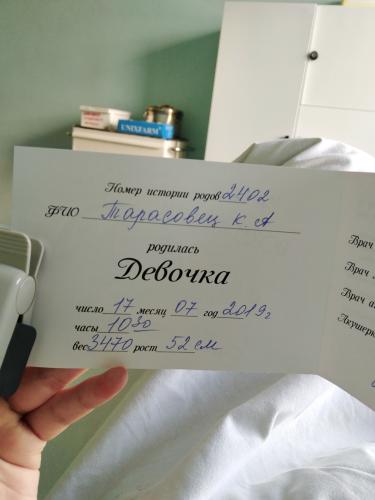 UNIXFARM
Номер истории родов 2402
ФИО Тарасовец К. А
родилась
Девочка
число 17 месяц 07 год 2019г
часы 10 30
вес 3470 рост 52 см
Врач
Врач
Врач
Акушерк